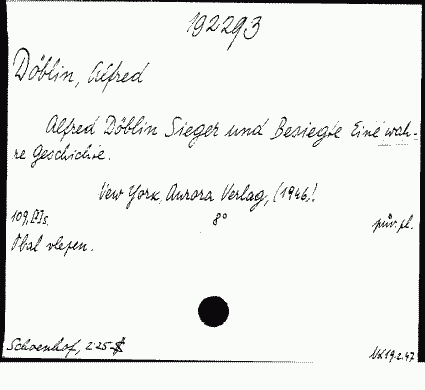 192293
Döblin, Alfred
Alfred Döblin Sieger und Besiegte Eine wah-
re Geschichte.
New York, Aurora Verlag, (1946).
109, [1] s. 8° püv. pl.
Obal vlepen.
Schoenhof, 2.25 $
19.2.47